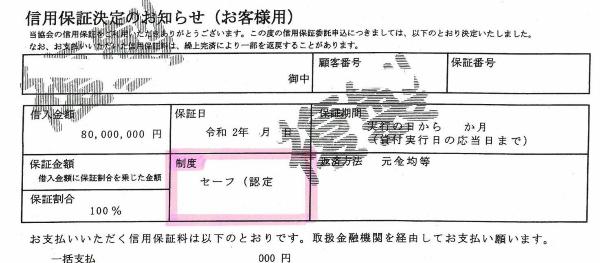 信用保証決定のお知らせ（お客様用）
当協会の信用保証をご利用いただきありがとうございます。この度の信用保証委託申込につきましては、以下のとおり決定いたしました。
なお、お支払いいただいた信用保証料は、繰上完済により一部を返戻することがあります。
御中
顧客番号
保証番号
借入金額
80,000,000 円
保証日
令和 2年 月 日
保証期間
実行の日から か月
（貸付実行日の応当日まで）
保証金額
借入金額に保証割合を乗じた金額
制度
セーフ（認定
返済方法 元金均等
保証割合
100 %
お支払いいただく信用保証料は以下のとおりです。取扱金融機関を経由してお支払い願います。
一括支払 000 円